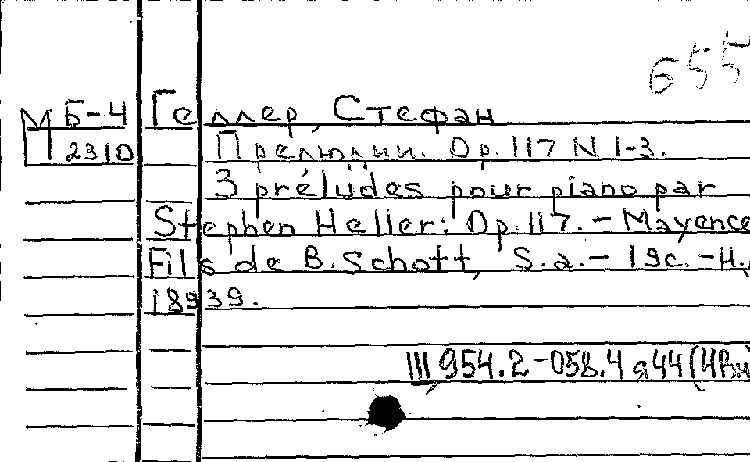 655
М Б-4 Геллер, Стефан
2310 Прелюдии. Op. 117 N 1-3.
3 préludes pour piano par
Stephen Heller: Op. 117. – Mayence
Fils de B. Schott, S. a. – 19c. – H.
18939.
III 954.2-058.4 я44(4Вн